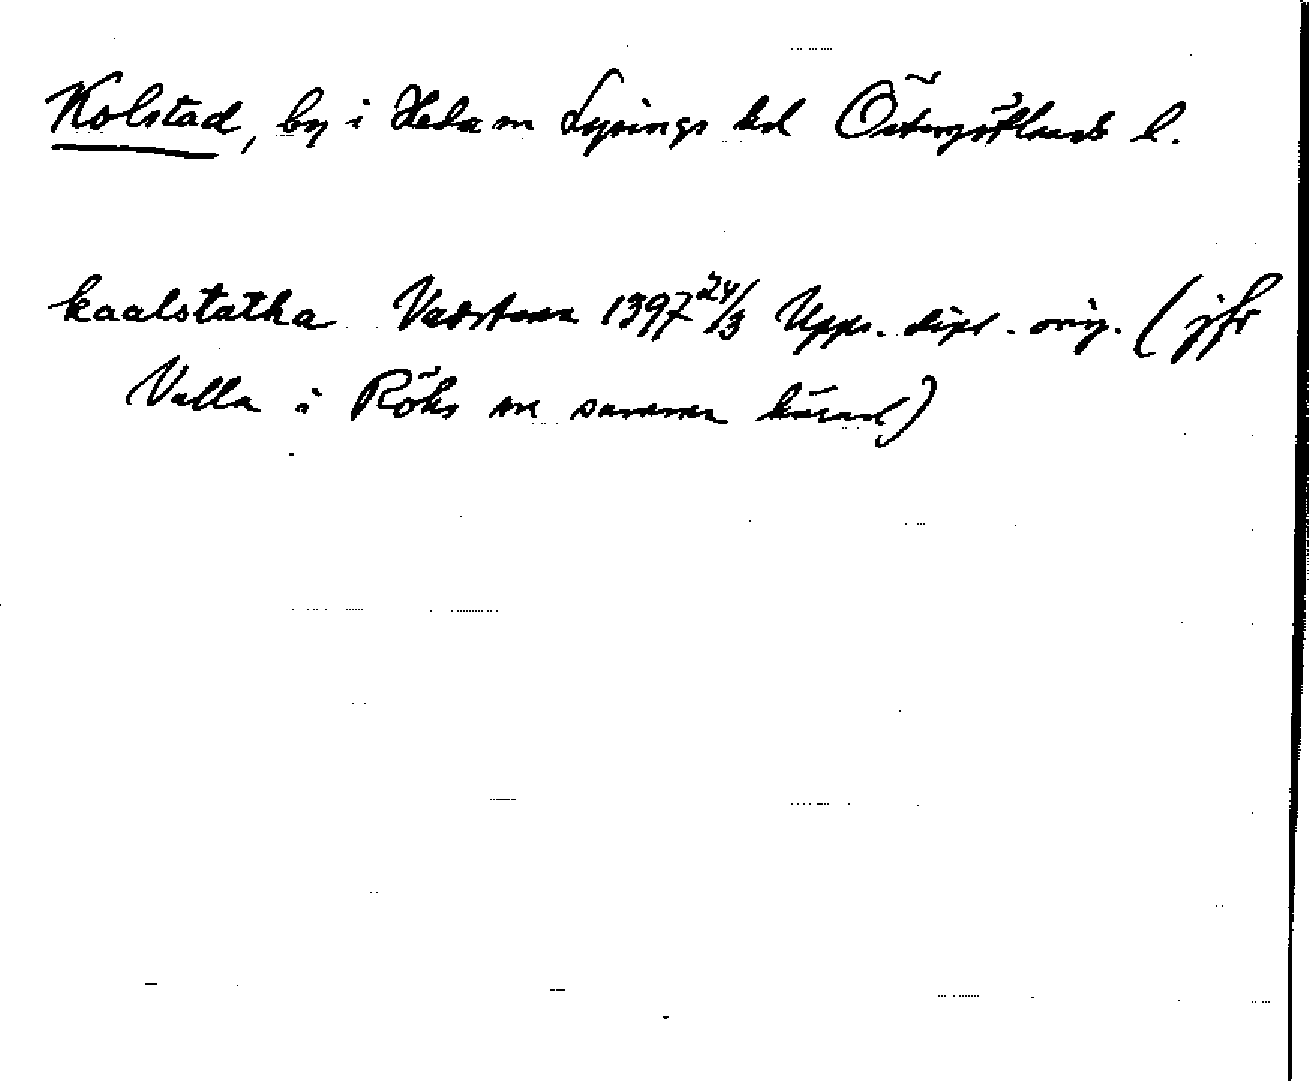 Kolstad, by i Heda sn Lysings hd Östergötlands l.
kaalstatha Vadstena 1397 24/3 Upps. dipl. orig. (jfr
Valla i Röks sn samma härad)